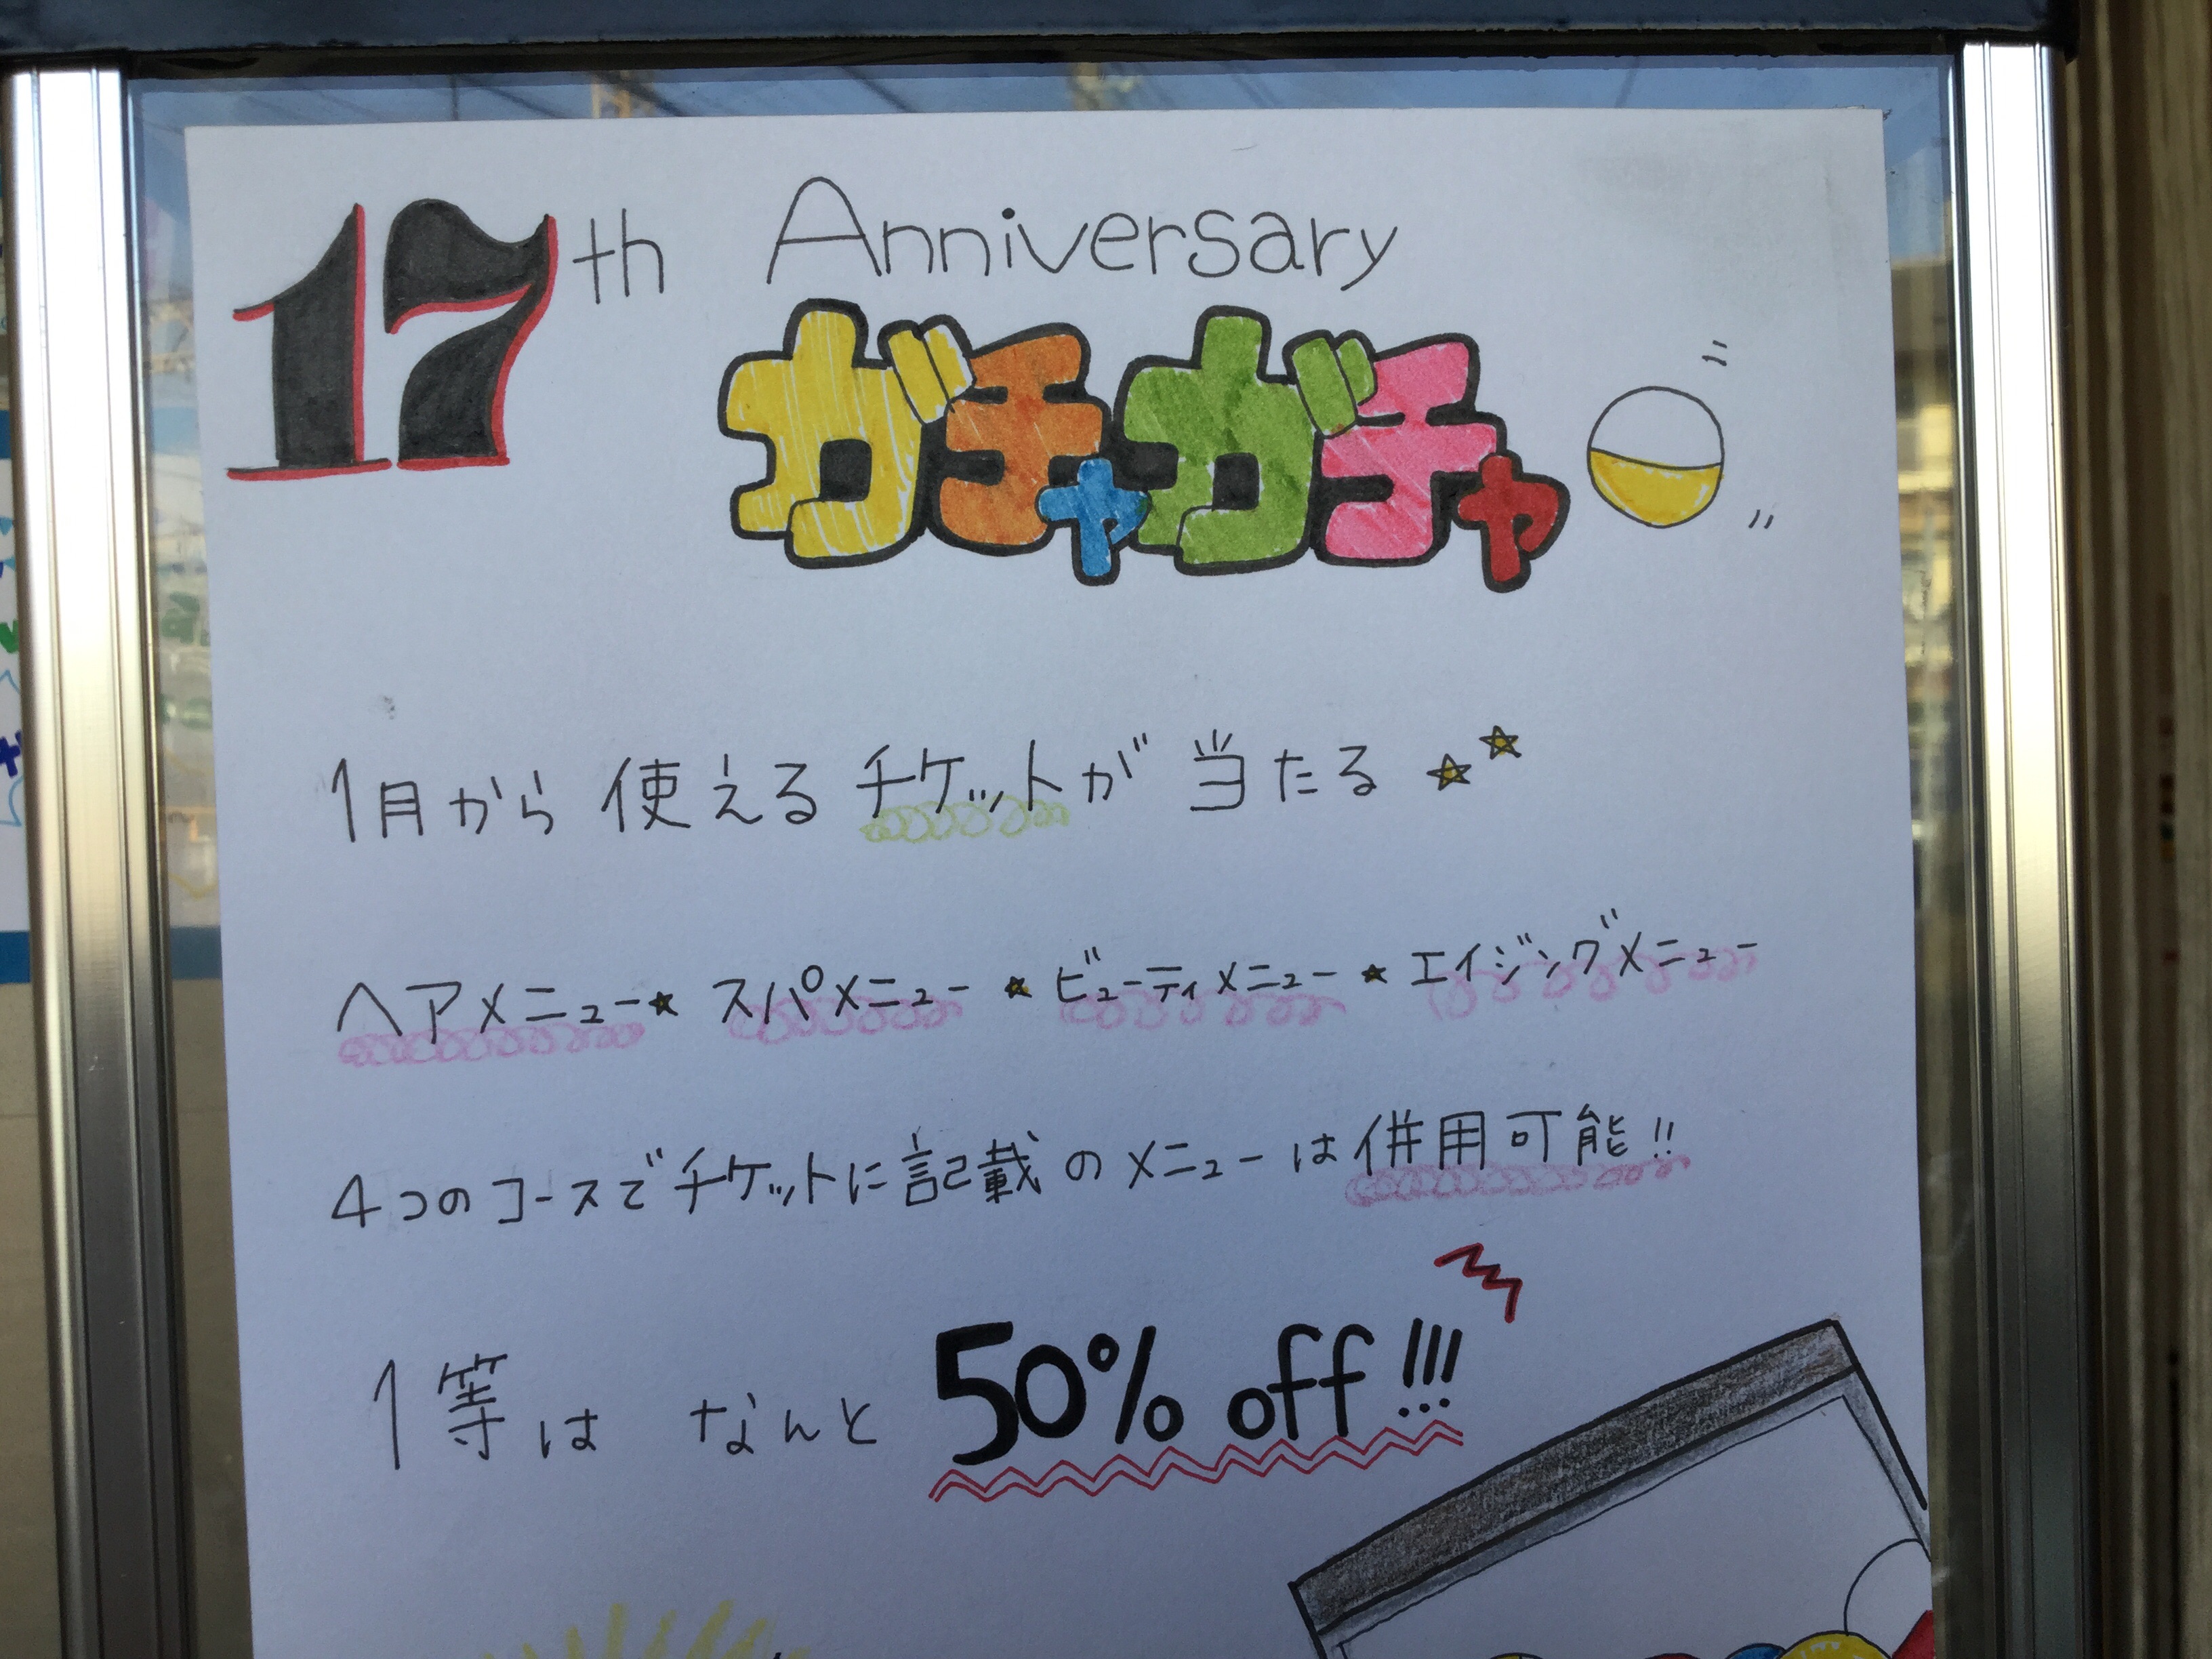 17th Anniversary
ガチャガチャ
1月から使えるチケットが当たる★★
ヘアメニュー★スパメニュー★ビューティメニュー★エイジングメニュー
4つのコースでチケットに記載のメニューは併用可能!!
1等は なんと 50% off!!!